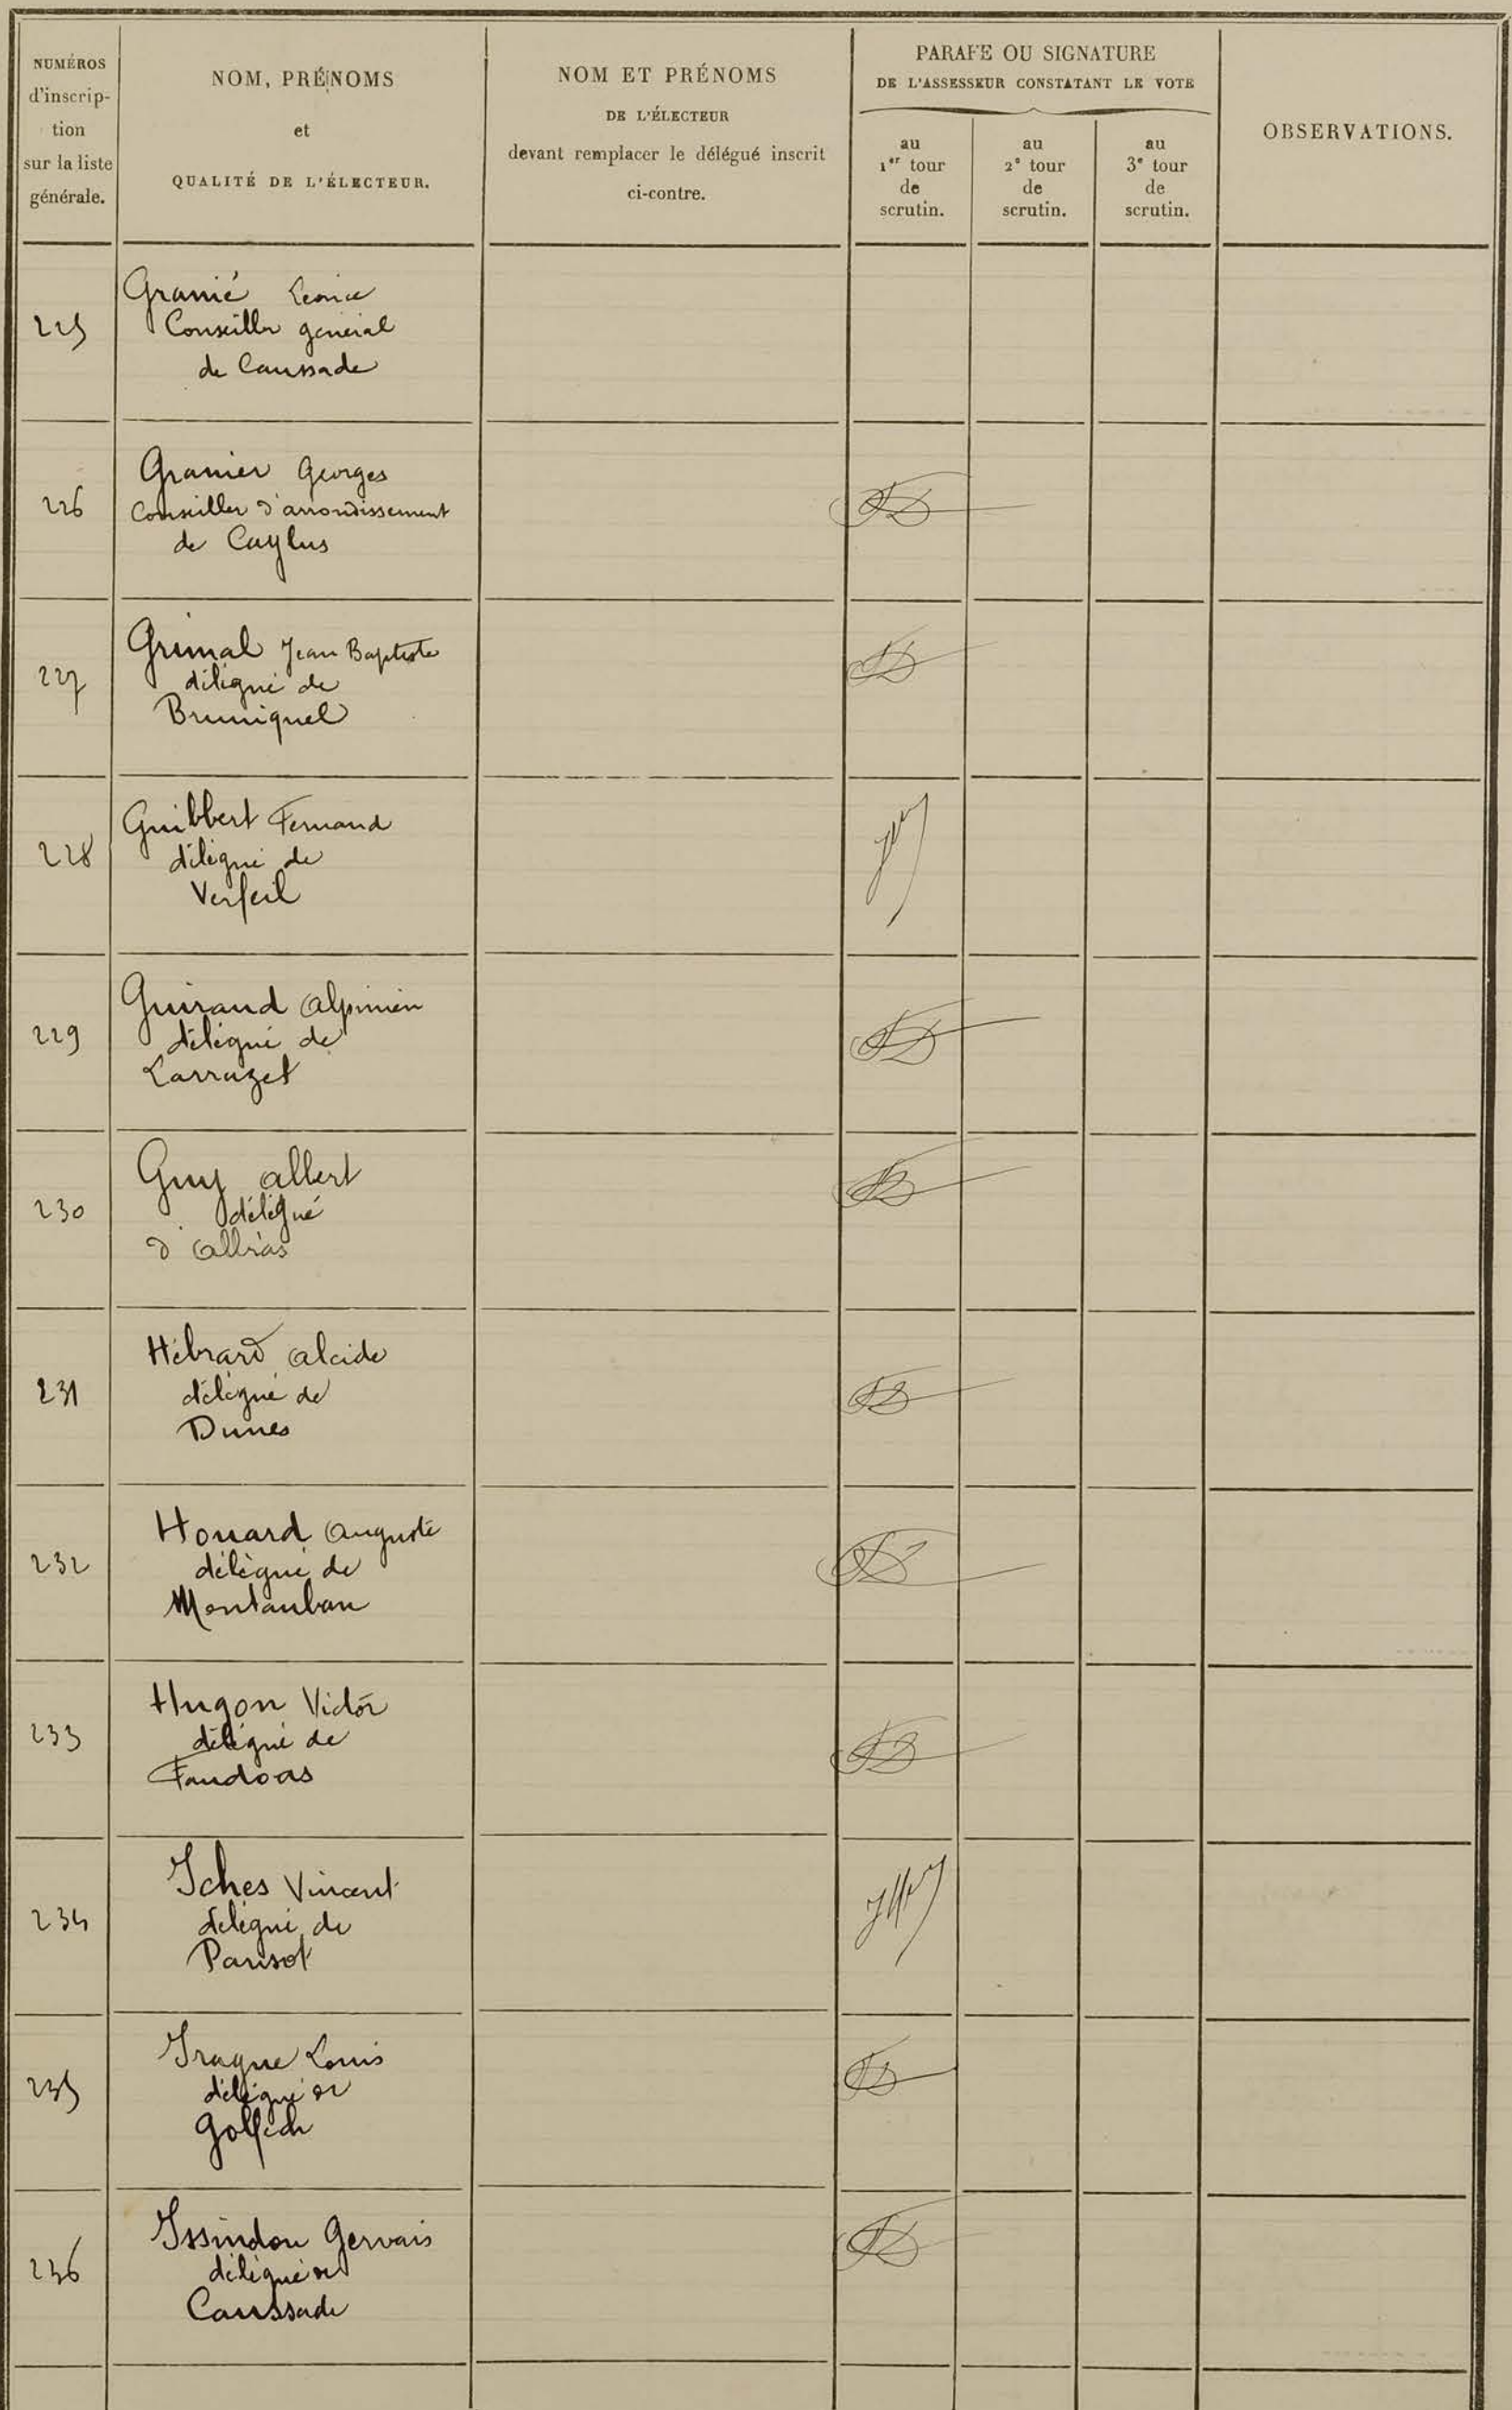 NUMÉROS
d'inscrip-
tion
sur la liste
générale.
NOM, PRÉNOMS
et
QUALITÉ DE L'ÉLECTEUR.
NOM ET PRÉNOMS
DE L'ÉLECTEUR
devant remplacer le délégué inscrit
ci-contre.
PARAFE OU SIGNATURE
DE L'ASSESSEUR CONSTATANT LE VOTE
au
1er tour
de
scrutin.
au
2e tour
de
scrutin.
au
3e tour
de
scrutin.
OBSERVATIONS.
225
Granié Léonce
Conseiller général
de Caussade
226
Granier Georges
Conseiller d'arrondissement
de Caylus
227
Grimal Jean Baptiste
délégué de
Bruniquel
228
Guibbert Fernand
délégué de
Verfeil
229
Guiraud Alpinien
délégué de
Larrazet
230
Guy Albert
délégué
d'Albias
231
Hébrard Alcide
délégué de
Dunes
232
Houard Auguste
délégué de
Montauban
233
Hugon Victor
délégué de
Faudoas
234
Iches Vincent
délégué de
Parisot
235
Irague Louis
délégué de
Golfech
236
Issindou Gervais
délégué de
Caussade